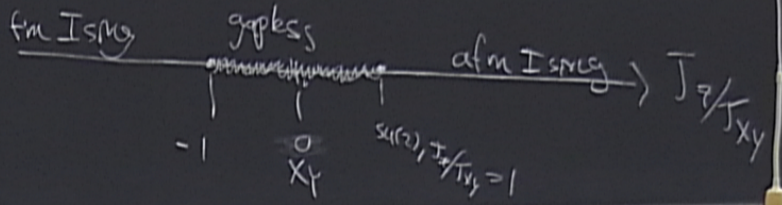 fm Ising gapless afm Ising J_z/J_xy
-1 0 su(2), J_z/J_xy = 1
XY